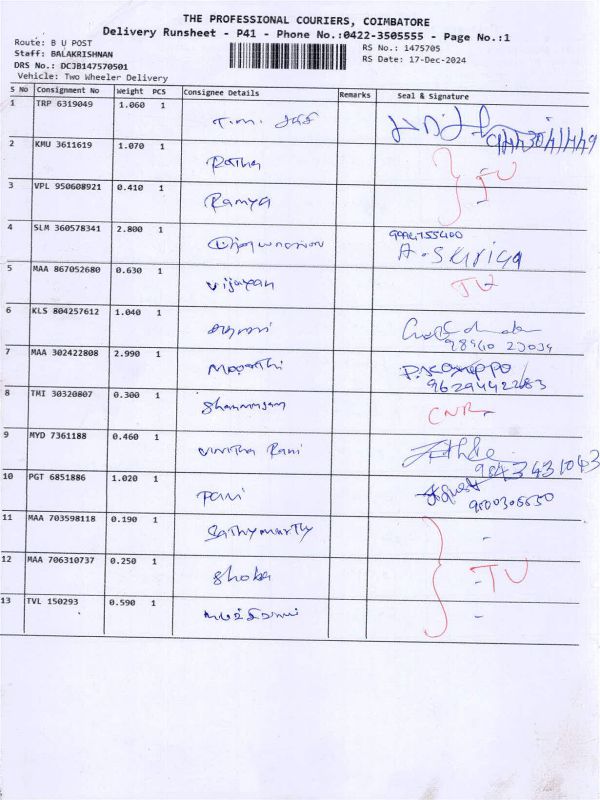 THE PROFESSIONAL COURIERS, COIMBATORE
Delivery Runsheet - P41 - Phone No.:0422-3505555 - Page No.:1
Route: B U POST
Staff: BALAKRISHNAN
DRS No.: DCJB147570501
Vehicle: Two Wheeler Delivery
RS No.: 1475705
RS Date: 17-Dec-2024
S No Consignment No Weight PCS Consignee Details Remarks Seal & Signature
1 TRP 6319049 1.060 1
2 KMU 3611619 1.070 1 Ratha
3 VPL 950608921 0.410 1 Ramya
4 SLM 360578341 2.800 1
5 MAA 867052680 0.630 1 vijayan
6 KLS 804257612 1.040 1
7 MAA 302422808 2.990 1 Moorthi
9629442283
8 TMI 30320807 0.300 1 Shanmugam CNR
9 MYD 7361188 0.460 1 Rani
9843431043
10 PGT 6851886 1.020 1
11 MAA 703598118 0.190 1 -
12 MAA 706310737 0.250 1 Shoba -
13 TVL 150293 0.590 1 -